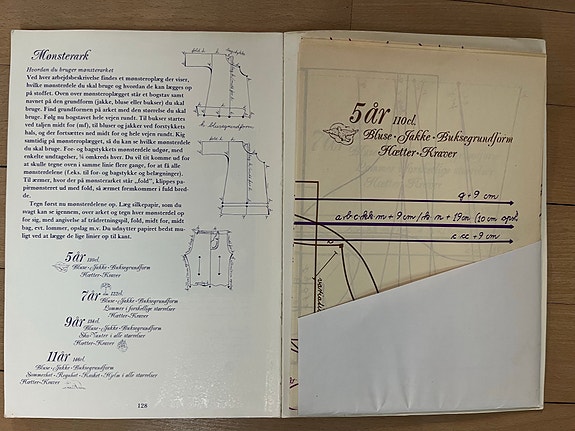 Mønsterark
Hvordan du bruger mønsterarket
Ved hver arbejdsbeskrivelse findes et mønsteroplæg der viser,
hvilke mønsterdele du skal bruge og hvordan de kan lægges op
på stoffet. Oven over mønsteroplægget står et bogstav samt
navnet på den grundform (jakke, bluse eller bukser) du skal
bruge. Find grundformen på arket med den størrelse du skal
bruge. Følg nu bogstavet hele vejen rundt. Til bukser startes
ved taljen midt for (mf), til bluser og jakker ved forstykkets
hals, og der fortsættes ned midt for og hele vejen rundt. Kig
samtidig på mønsteroplægget, så du kan se hvilke mønsterdele
du skal bruge. For- og bagstykkets mønsterdele udgør, med
enkelte undtagelser, ¼ omkreds hver. Du vil tit komme ud for
at skulle tegne oven i samme linie flere gange, for at få alle
mønsterdelene (f.eks. til for- og bagstykke og belægninger).
Til ærmer, hvor der på mønsterarket står „fold“, klippes pa-
pirmønsteret ud med fold, så ærmet fremkommer i fuld bred-
de.
Tegn først nu mønsterdelene op. Læg silkepapir, som du
svagt kan se igennem, over arket og tegn hver mønsterdel op
for sig, med angivelse af trådretningspil, fold, midt for, midt
bag, evt. lommer, opslag m.v. Du udnytter papiret bedst mu-
ligt ved at lægge de lige linier op til kant.
h blusegrundform
5år 110cl.
Bluse-Jakke-Buksegrundform
Hætter-Kraver
7år 122cl.
Bluse-Jakke-Buksegrundform
Lommer i forskellige størrelser
9år 134cl.
Bluse-Jakke-Buksegrundform
Hætter-Kraver
11år 146cl.
Bluse-Jakke-Buksegrundform
Hætter-Kraver
128
5år 110cl.
Bluse-Jakke-Buksegrundform
Hætter-Kraver
g + 9 cm